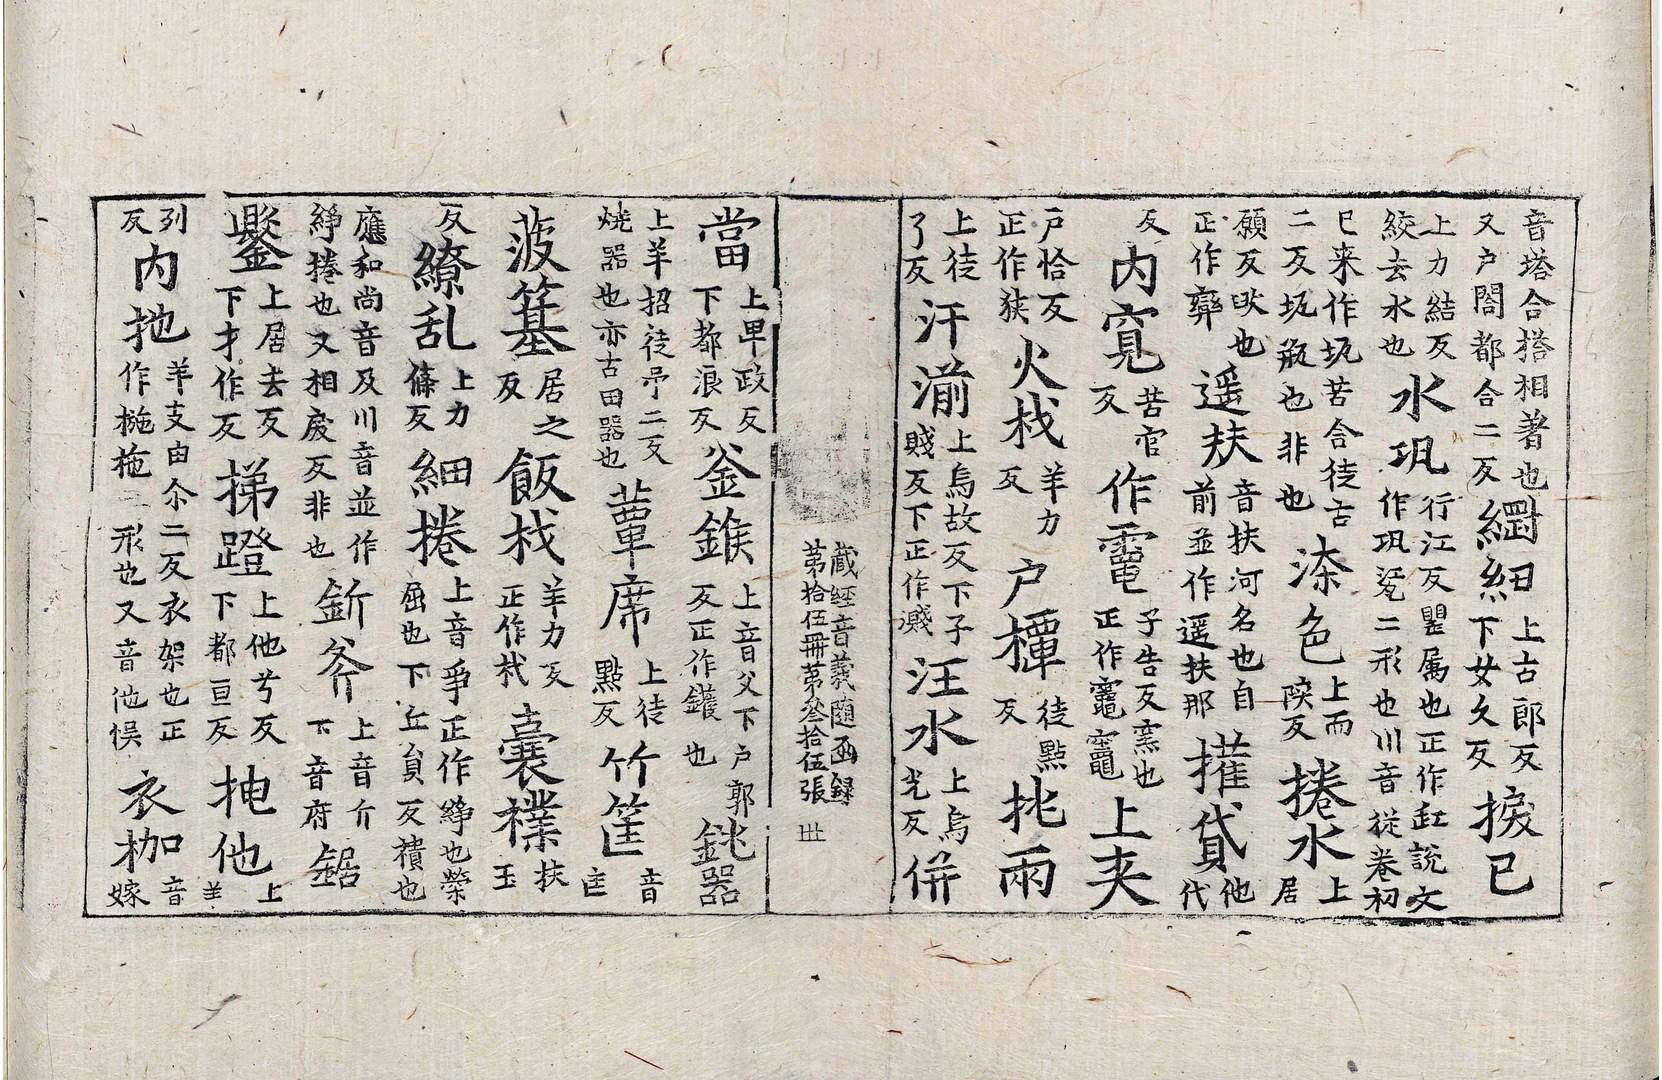 音塔合搭相著也
又户閤都合二反
綱紐
上古郎反
下女久反
捩已
上力結反
絞去水也
水㺬
行江反甖属也正作缸說文
作㺬瓨二形也川音従卷初
已来作坈苦合徒古
二反坈瓶也非也
柒色
上而
陝反
捲水
上
居
願反
也
正作
遥扶
音扶河名也自
前並作遥扶那
貸
他
代
反
内寛
苦官
反
作竈
子告反窯也
正作竈竈
上夹
户恰反
正作狭
火栈
羊力
反
户橝
徒點
反
挑兩
上徒
了反
汗湔
上烏故反下子
賤反下正作濺
汪水
上烏
光反
併
藏經音義随函録
第拾伍冊第叄拾伍張 世
當
上卑政反
下都浪反
釜鑊
上音父下户郭
反正作鑊也
銚器
上羊招徒予二反
燒器也亦古田器也
蕈席
上徒
點反
竹筐
音
匡
菠萁
居之
反
飯杙
羊力反
正作杙
囊襆
扶
玉
反
繚乱
上力
條反
細捲
上音爭正作綪也縈
屈也下丘貟反襀也
應和尚音及川音並作
綪捲也又相废反非也
釿斧
上音斤
下音府
鋸
鑿
上居去反
下才作反
梯蹬
上他兮反
下都亘反
拽他
上
羊
列
反
内扡
羊支由尒二反衣架也正
作椸柂二形也又音他悮
衣枷
音
嫁